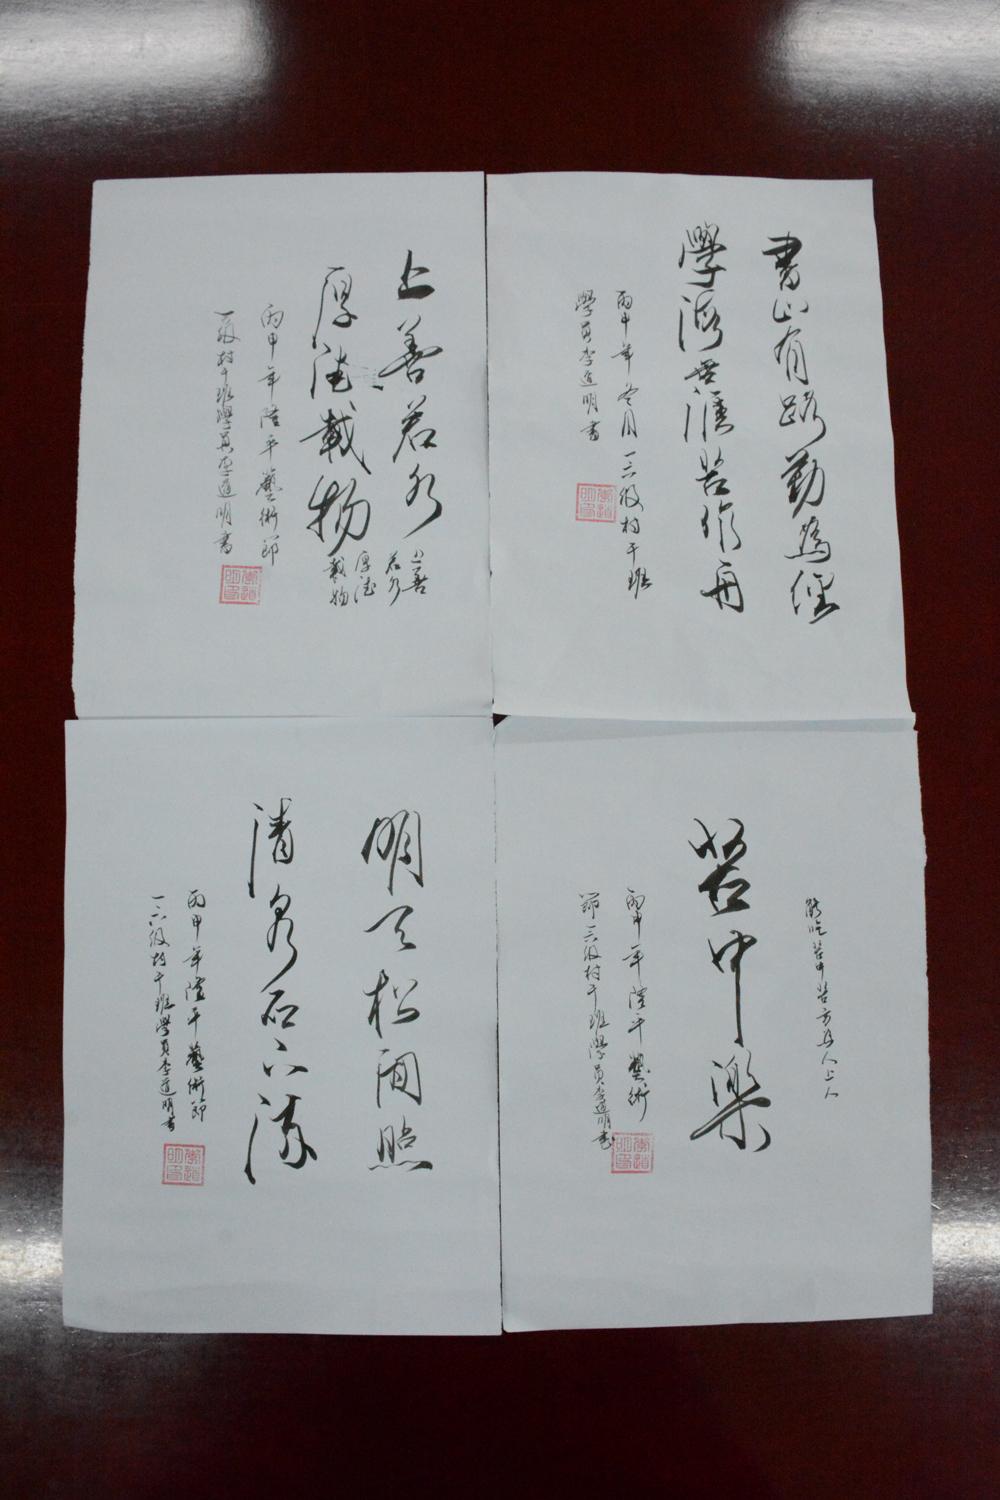 書山有路勤為徑
學海無涯苦作舟
丙申年冬月一六級村干班
學員李道明書
上善若水
厚德載物
上善
若水
厚德
載物
丙申年隆平藝術節
一六級村干班學員李道明書
能吃苦中苦方為人上人
苦中樂
丙申年隆平藝術
節一六級村干班學員李道明書
明天松間照
清泉石上流
丙申年隆平藝術節
一六級村干班學員李道明書